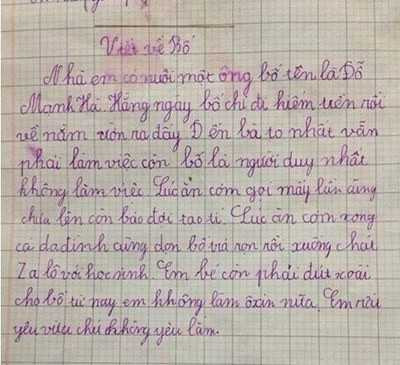 Viết về Bố
Nhà em có nuôi một ông bố tên là Đỗ
Mạnh Hà. Hằng ngày bố chỉ đi kiếm uốn rồi
về nằm ườn ra đấy Đến bà to nhất vẫn
phải làm việc còn bố là người duy nhất
không làm việc. Lúc ăn cơm gọi mấy lần cũng
chưa lên còn bảo đợi tao tí. Lúc ăn cơm xong
cả da đình cùng dọn bố vả rọn rồi xuống chát
Za lô với học sinh. Em bé còn phải đút xoài
cho bố từ nay em không làm ôxin nữa. Em rửa
yêu vừa chứ không yêu lắm.